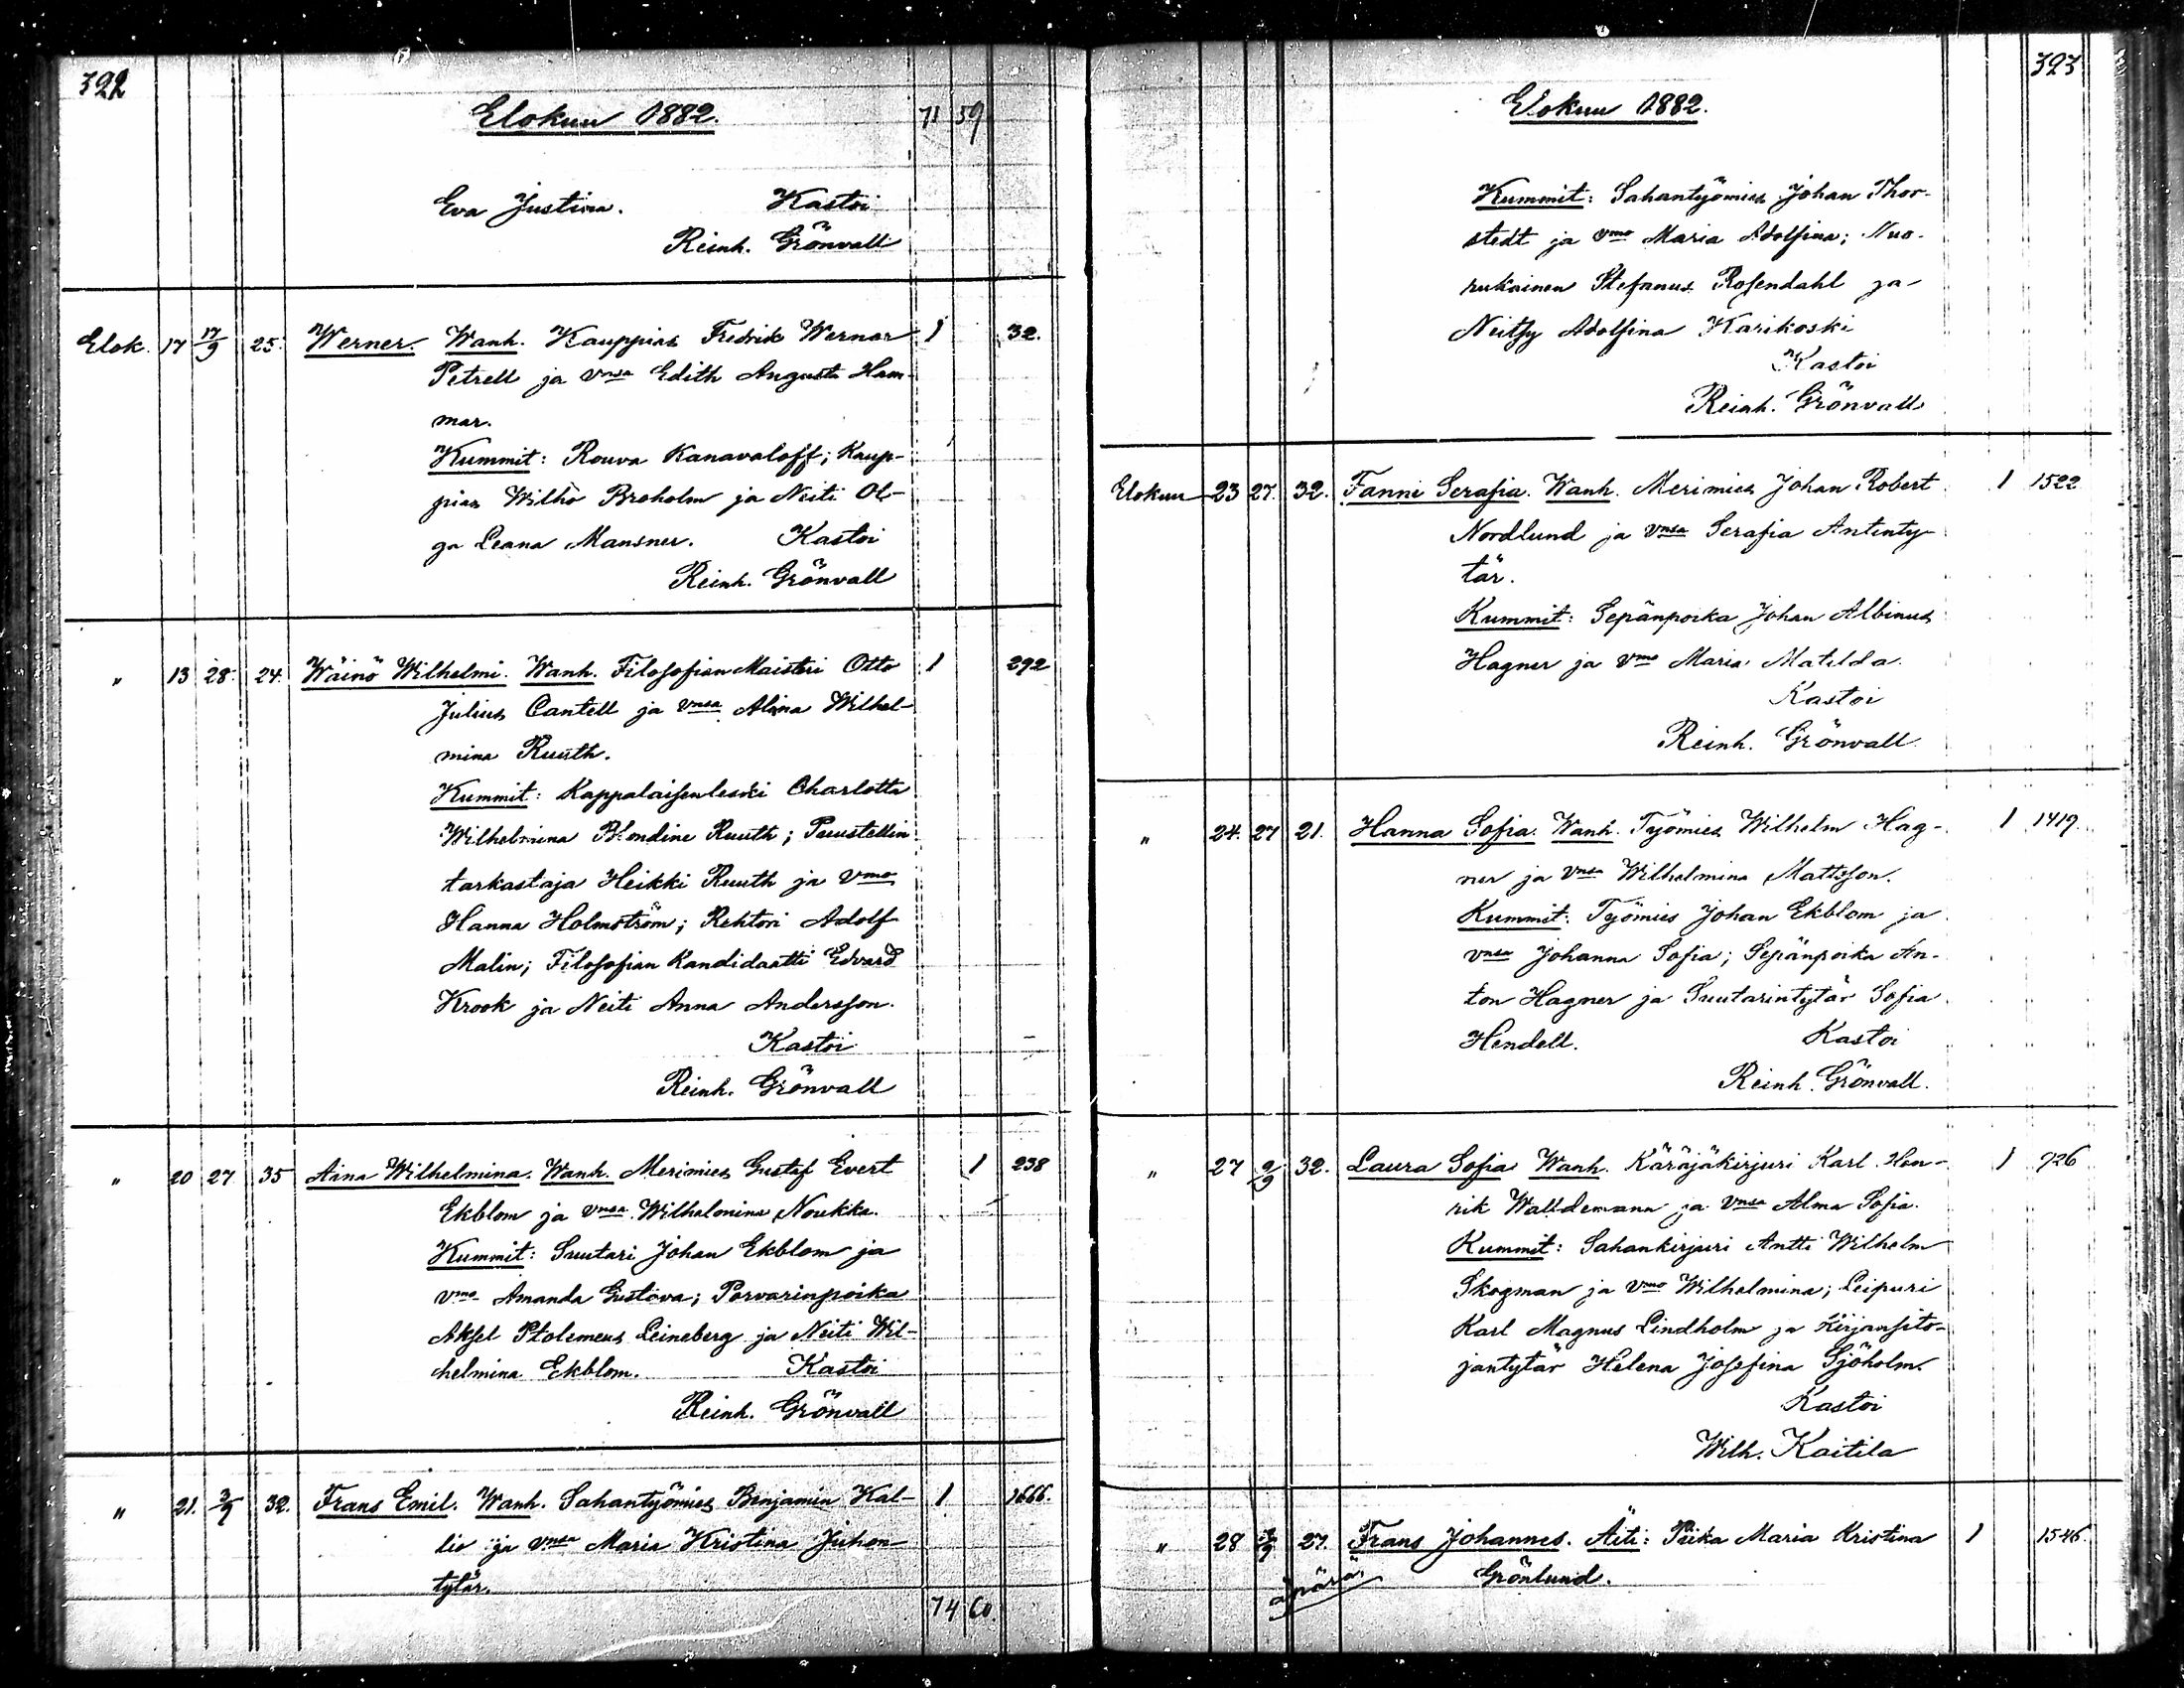 322
Elokuu 1882.
71 59
Eva Justina. Kastoi
Reinh. Grönvall
Elok. 17 17/9 25. Werner. Wanh. Kauppias Fredrik Werner 1 32.
Petrell ja vmsa Edith Augusta Ham-
mar.
Kummit: Rouva Kanavaloff; Kaup-
pias Wilho Broholm ja Neiti Ol-
ga Leana Mansner. Kastoi
Reinh. Grönvall
" 13 28. 24. Wäinö Wilhelmi. Wanh. Filosofian Maisteri Otto 1 292
Julius Cantell ja vmsa Alina Wilhel-
mina Ruuth.
Kummit: Kappalaisenleski Charlotta
Wilhelmina Blondine Ruuth; Puustellin
tarkastaja Heikki Ruuth ja vmo
Hanna Holmström; Rehtori Adolf
Malin; Filosofian Kandidaatti Edvard
Krook ja Neiti Anna Andersson.
Kastoi
Reinh. Grönvall
" 20 27 35 Aina Wilhelmina. Wanh. Merimies Gustaf Evert 1 238
Ekblom ja vmsa Wilhelmina Noukka.
Kummit: Suutari Johan Ekblom ja
vmo Amanda Gustava; Porvarinpoika
Aksel Ptolemeus Leineberg ja Neiti Wil-
helmina Ekblom. Kastoi
Reinh. Grönvall
" 21. 3/9 32. Frans Emil. Wanh. Sahantyömies Benjamin Kal- 1 1666.
lio ja vmsa Maria Kristina Juhon-
tytär.
74 60.
323
Elokuu 1882.
Kummit: Sahantyömies Johan Thor-
stedt ja vmo Maria Adolfina; Nuo-
rukainen Stefanus Rosendahl ja
Neitsy Adolfina Karikoski
Kastoi
Reinh. Grönvall
Elokuu 23 27. 32. Fanni Serafia. Wanh. Merimies Johan Robert 1 1522
Nordlund ja vmsa Serafia Antinty-
tär.
Kummit: Sepänpoika Johan Albinus
Hagner ja vmo Maria Matilda.
Kastoi
Reinh. Grönvall
" 24. 27 21. Hanna Sofia. Wanh. Työmies Wilhelm Hag- 1 1419.
ner ja vmsa Wilhelmina Mattsson.
Kummit: Työmies Johan Ekblom ja
vmsa Johanna Sofia; Sepänpoika An-
ton Hagner ja Suutarintytär Sofia
Hendell. Kastoi
Reinh. Grönvall.
" 27 2/9 32. Laura Sofia Wanh. Käräjäkirjuri Karl Hen- 1 726
rik Walldemann ja vmsa Alma Sofia.
Kummit: Sahankirjuri Antti Wilhelm
Skogman ja vmo Wilhelmina; Leipuri
Karl Magnus Lindholm ja Kirjansito-
jantytär Helena Josefina Sjöholm.
Kastoi
Wilh. Kaitila
" 28 27. Frans Johannes. Äiti: Piika Maria Kristina 1 1546.
Grönlund.